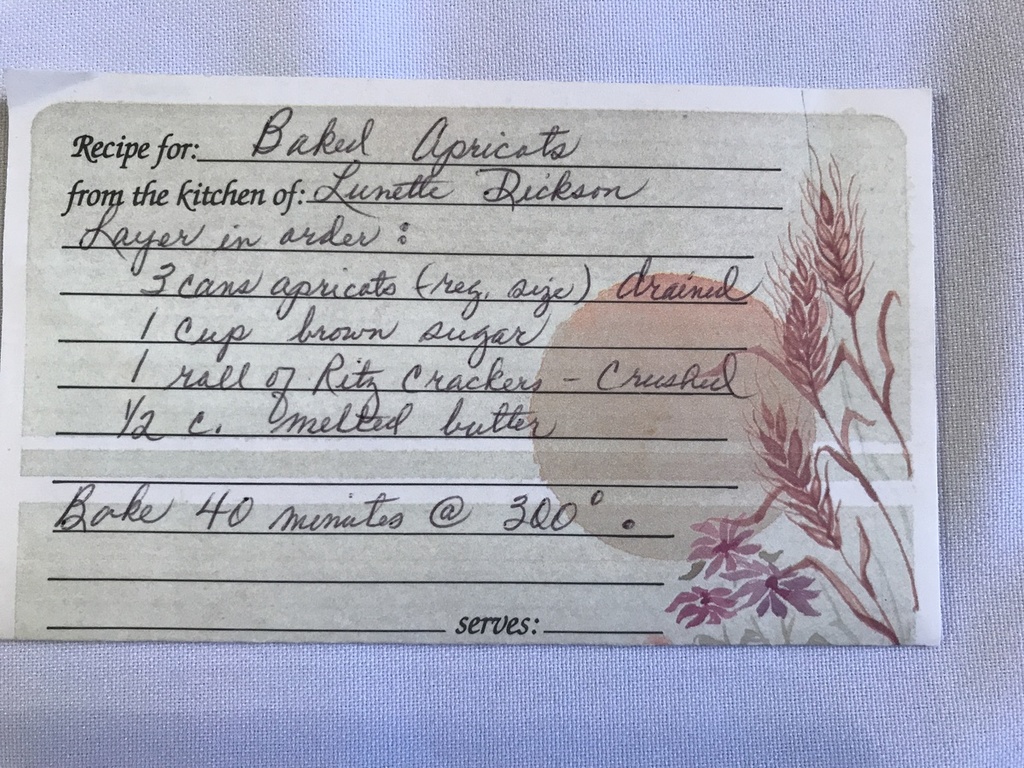 Recipe for: Baked Apricots
from the kitchen of: Lunette Dickson
Layer in order :
3 cans apricots (reg. size) drained
1 Cup brown sugar
1 roll of Ritz Crackers - Crushed
1/2 c. melted butter
Bake 40 minutes @ 300° .
serves: